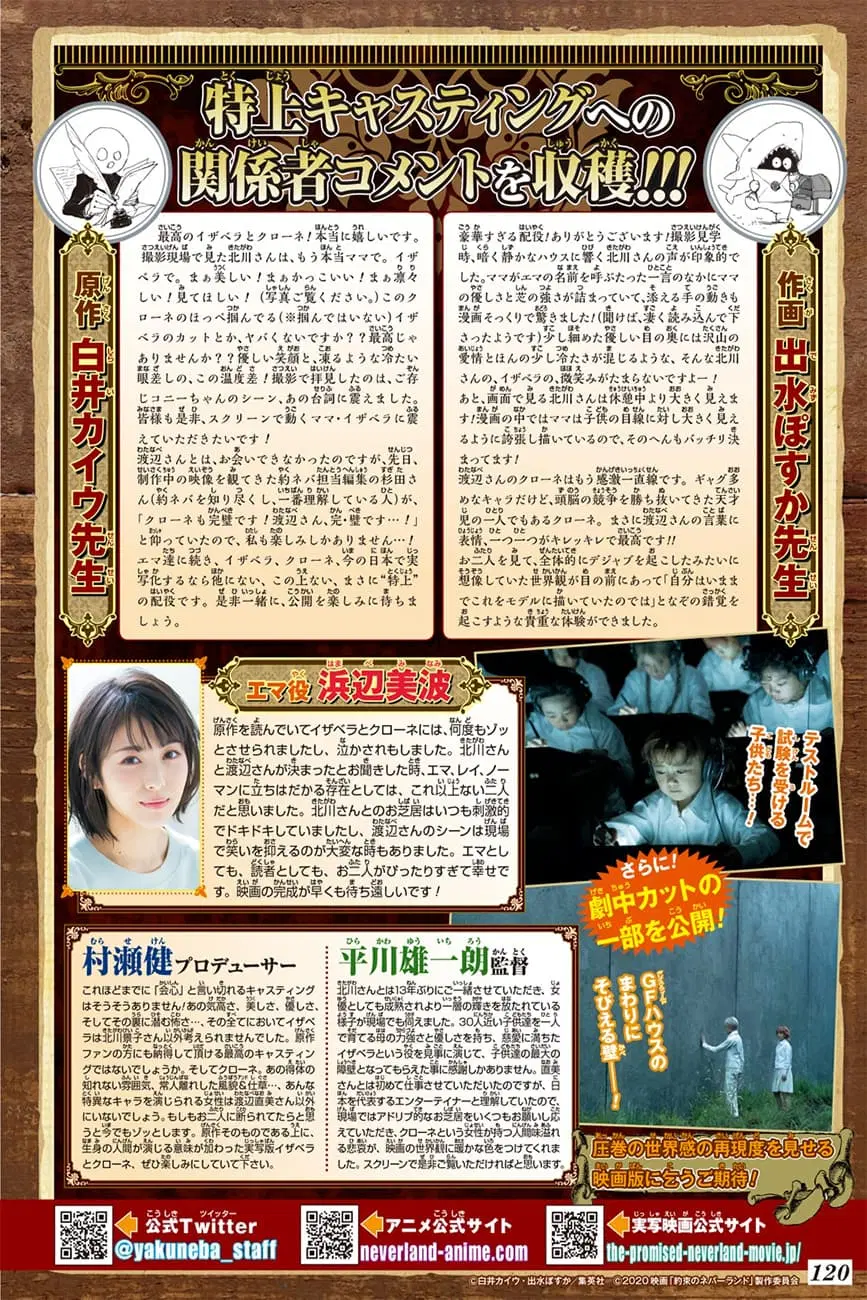 特上キャスティングへの
関係者コメントを収穫!!!
原作 白井カイウ先生
最高のイザベラとクローネ!本当に嬉しいです。
撮影現場で見た北川さんは、もう本当ママで。イザ
ベラで。まぁ美しい!まぁかっこいい!まぁ凛々
しい!見てほしい! (写真ご覧ください。)このク
ローネのほっぺ掴んでる(※掴んではいない)イザ
ベラのカットとか、ヤバくないですか??最高じゃ
ありませんか??優しい笑顔と、凍るような冷たい
眼差しの、この温度差!撮影で拝見したのは、ご存
じコニーちゃんのシーン、あの台詞に震えました。
皆様も是非、スクリーンで動くママ・イザベラに震
えていただきたいです!
渡辺さんとは、お会いできなかったのですが、先日、
制作中の映像を観てきた約ネバ担当編集の杉田さ
ん(約ネバを知り尽くし、一番理解している人)が、
「クローネも完璧です!渡辺さん、完・璧です…!」
と仰っていたので、私も楽しみしかありません…!
エマ達に続き、イザベラ、クローネ、今の日本で実
写化するなら他にない、この上ない、まさに“特上”
の配役です。是非一緒に、公開を楽しみに待ちま
しょう。
作画 出水ぽすか先生
豪華すぎる配役!ありがとうございます!撮影見学
時、暗く静かなハウスに響く北川さんの声が印象的で
した。ママがエマの名前を呼ぶたった一言のなかにママ
の優しさと芝の強さが詰まっていて、添える手の動きも
漫画そっくりで驚きました!(聞けば、凄く読み込んで下
さったようです)少し細めた優しい目の奥には沢山の
愛情とほんの少し冷たさが混じるような、そんな北川
さんの、イザベラの、微笑みがたまらないですよー!
あと、画面で見る北川さんは休憩中より大きく見えま
す!漫画の中ではママは子供の目線に対し大きく見え
るように誇張し描いているので、そのへんもバッチリ決
まってます!
渡辺さんのクローネはもう感激一直線です。ギャグ多
めなキャラだけど、頭脳の競争を勝ち抜いてきた天才
児の一人でもあるクローネ。まさに渡辺さんの言葉に
表情、一つ一つがキレッキレで最高です!!
お二人を見て、全体的にデジャブを起こしたみたいに
想像していた世界観が目の前にあって「自分はいまま
でこれをモデルに描いていたのでは」となぞの錯覚を
起こすような貴重な体験ができました。
エマ役 浜辺美波
原作を読んでいてイザベラとクローネには、何度もゾッ
とさせられましたし、泣かされもしました。北川さん
と渡辺さんが決まったとお聞きした時、エマ、レイ、ノー
マンに立ちはだかる存在としては、これ以上ない二人
だと思いました。北川さんとのお芝居はいつも刺激的
でドキドキしていましたし、渡辺さんのシーンは現場
で笑いを抑えるのが大変な時もありました。エマとし
ても、読者としても、お二人がぴったりすぎて幸せで
す。映画の完成が早くも待ち遠しいです!
テストルームで
試験を受ける
子供たち…!
さらに!
劇中カットの
一部を公開!
GFハウスの
まわりに
そびえる壁——!
村瀬健プロデューサー
これほどまでに「会心」と言い切れるキャスティング
はそうそうありません!あの気高さ、美しさ、優しさ、
そしてその裏に潜む怖さ…、その全てにおいてイザベ
ラは北川景子さん以外考えられませんでした。原作
ファンの方にも納得して頂ける最高のキャスティン
グではないでしょうか。そしてクローネ。あの得体の
知れない雰囲気、常人離れした風貌&仕草…、あんな
特異なキャラを演じられる女性は渡辺直美さん以外
にいないでしょう。もしもお二人に断られてたらと思
うと今でもゾッとします。原作そのものである上に、
生身の人間が演じる意味が加わった実写版イザベラ
とクローネ、ぜひ楽しみにしていて下さい。
平川雄一朗監督
北川さんとは13年ぶりにご一緒させていただき、女
優としても成熟されより一層の輝きを放たれている
様子が現場でも伺えました。30人近い子供達を一人
で育てる母の力強さと優しさを持ち、慈愛に満ちた
イザベラという役を見事に演じて、子供達の最大の
障壁となってもらえた事に感謝しかありません。直美
さんとは初めて仕事させていただいたのですが、日
本を代表するエンターテイナーと理解していたので、
現場ではアドリブ的なお芝居をいくつもお願いし応
えていただき、クローネという女性が持つ人間味溢れ
る悲哀が、映画の世界観に暖かな色をつけてくれま
した。スクリーンで是非ご覧いただければと思います。
圧巻の世界感の再現度を見せる
映画版に乞うご期待!
公式Twitter
@yakuneba_staff
アニメ公式サイト
neverland-anime.com
実写映画公式サイト
the-promised-neverland-movie.jp/
120
©白井カイウ・出水ぽすか/集英社 ©2020 映画「約束のネバーランド」製作委員会